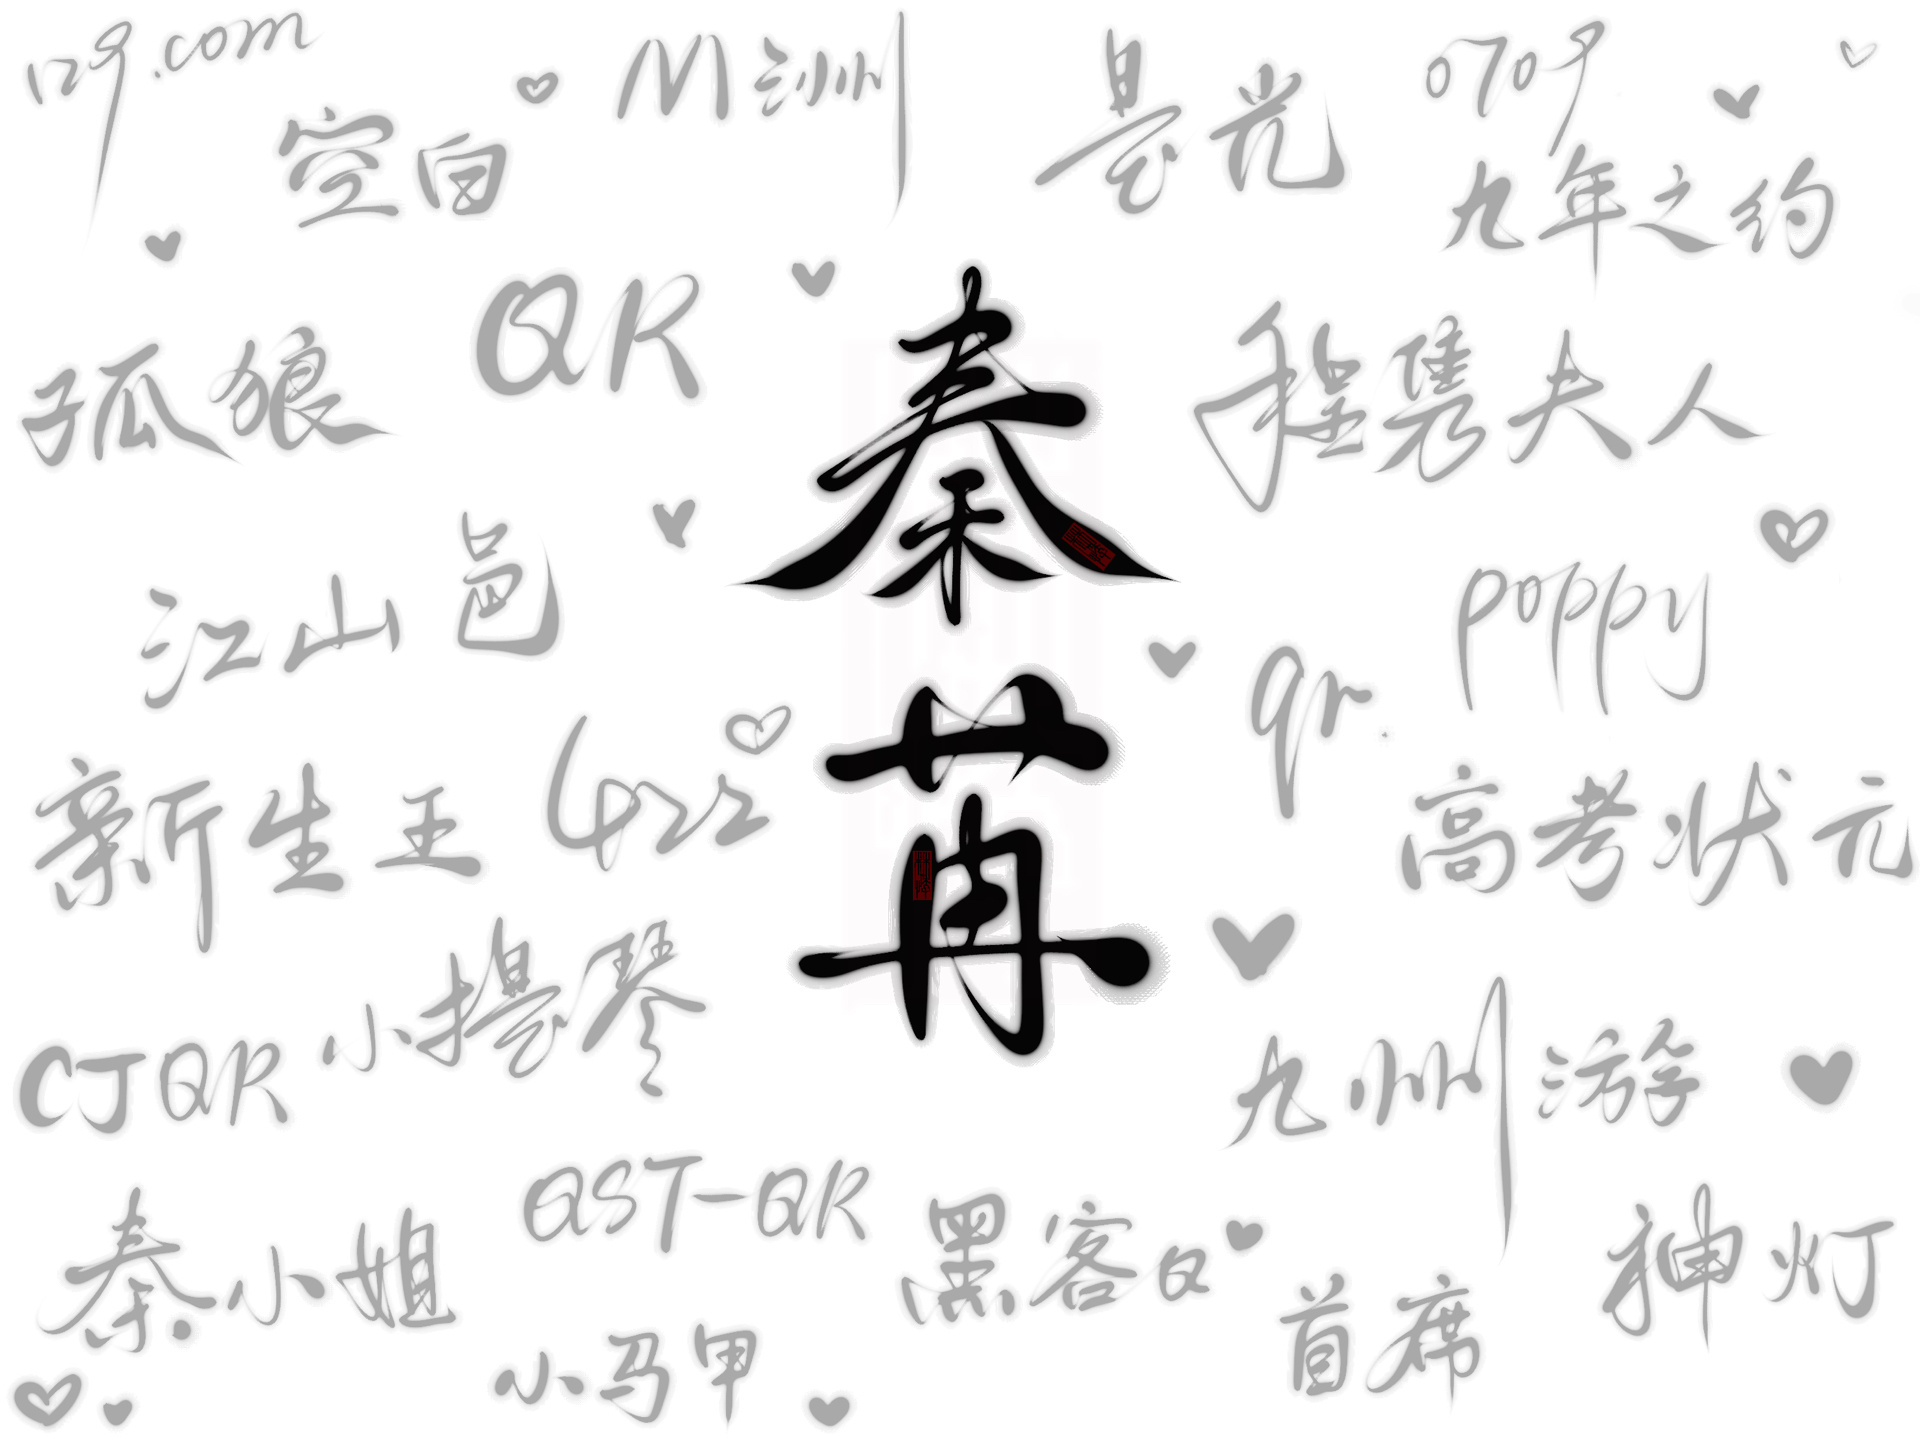 129.com
M洲
是光
0709
空白
九年之约
QR
孤狼
秦苒
程隽夫人
江山邑
poppy
qr.
新生王
422
高考状元
小提琴
CJQR
九州游
QST-QR
秦小姐
黑客Q
神灯
首席
小马甲